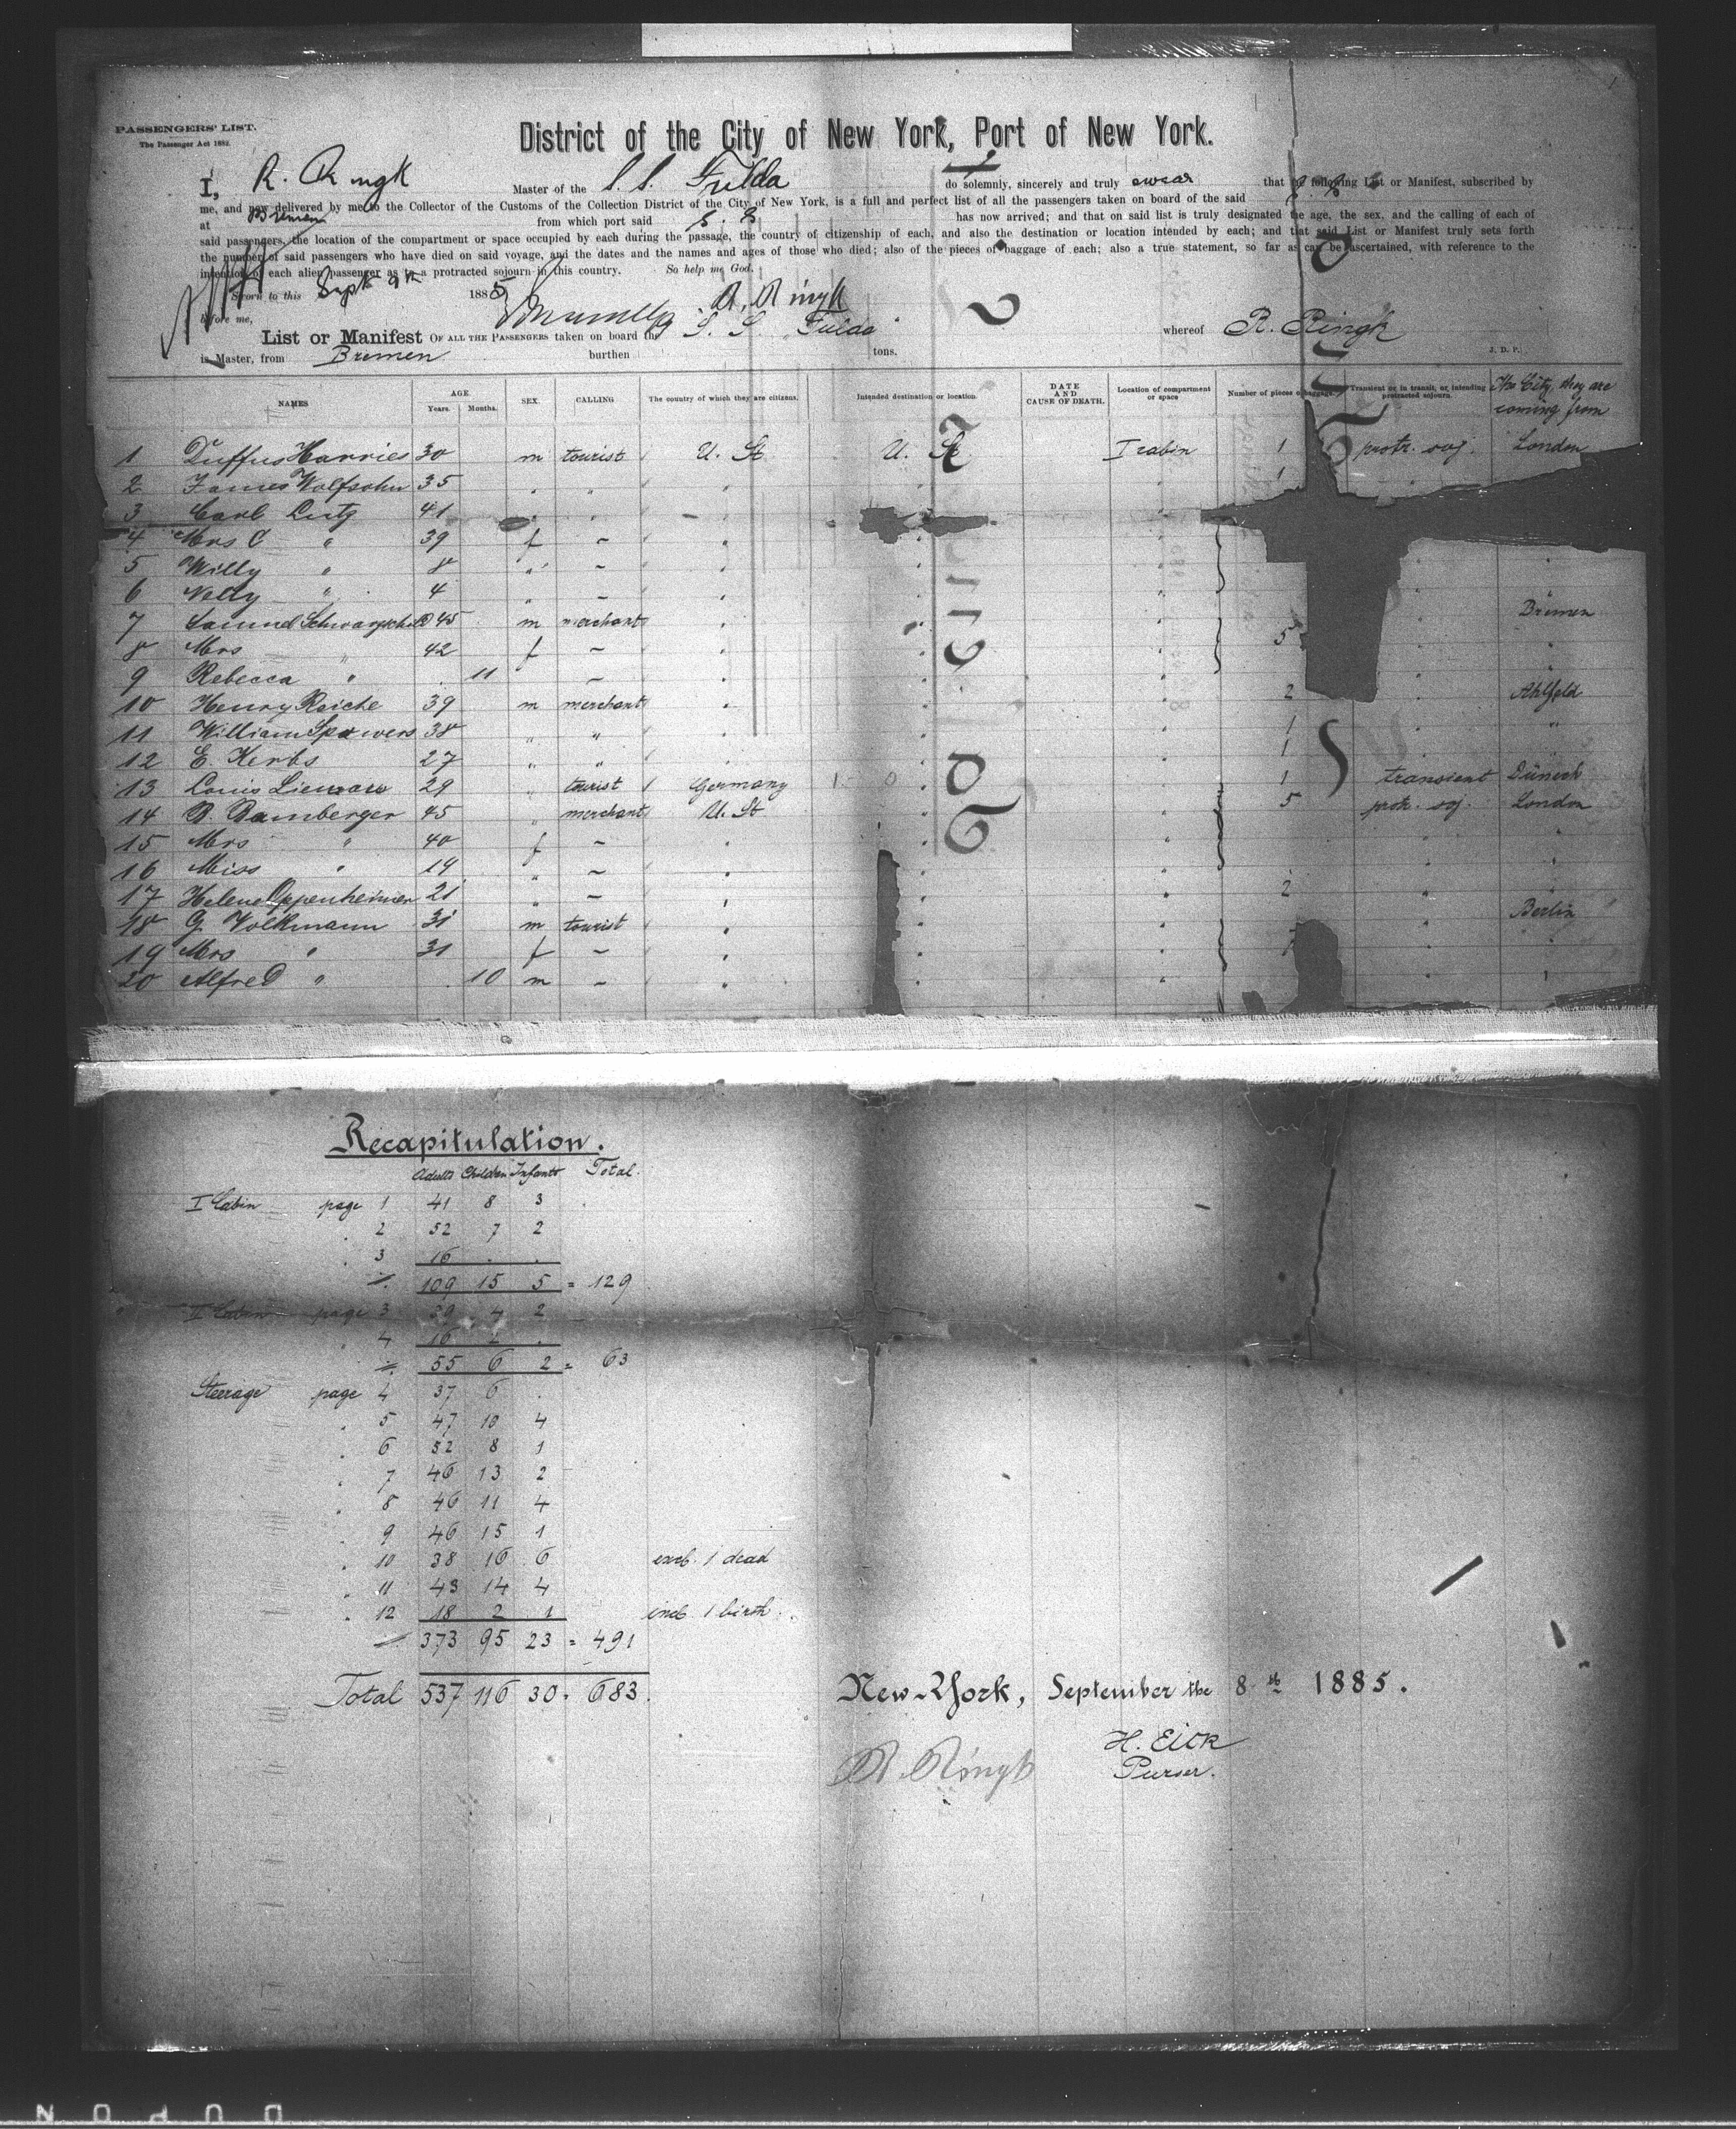 PASSENGERS' LIST.
The Passenger Act 1882.
District of the City of New York, Port of New York.
I, R. Ringk Master of the S. S. Fulda do solemnly, sincerely and truly swear that the following List or Manifest, subscribed by
me, and now delivered by me to the Collector of the Customs of the Collection District of the City of New York, is a full and perfect list of all the passengers taken on board of the said
at Bremen from which port said S. S. has now arrived; and that on said list is truly designated the age, the sex, and the calling of each of
said passengers, the location of the compartment or space occupied by each during the passage, the country of citizenship of each, and also the destination or location intended by each; and that said List or Manifest truly sets forth
the number of said passengers who have died on said voyage, and the dates and the names and ages of those who died; also of the pieces of baggage of each; also a true statement, so far as can be ascertained, with reference to the
intention of each alien passenger as to a protracted sojourn in this country. So help me God.
Sworn to this Sept 9th 1885 R. Ringk
before me,
List or Manifest OF ALL THE PASSENGERS taken on board the S. S. Fulda whereof R. Ringk
is Master, from Bremen burthen tons.
J. D. P.
NAMES AGE Years. Months. SEX. CALLING The country of which they are citizens. Intended destination or location. DATE AND CAUSE OF DEATH. Location of compartment or space Number of pieces of baggage. Transient or in transit, or intending protracted sojourn. The City, they are coming from
1 Duffus Harries 30 m tourist U. St U. St I cabin 1 protr. soj. London
2 James Wolfsohn 35 " " " " " 1
3 Carl Lutz 41 " "
4 Mrs C " 39 f – " "
5 Willy " 8 " – " "
6 Nelly " 4 " – " "
7 Samuel Schwarzschild 45 m merchant " " " 5 " Bremen
8 Mrs " 42 f – " " " " "
9 Rebecca " 11 – " " " " "
10 Henry Reiche 39 m merchant " " " 2 " Ahlfeld
11 William Spawers 38 " " " " " 1 " "
12 E. Kerbs 27 " " " " " 1
13 Louis 29 " tourist Germany " " 1 transient
14 B. Bamberger 45 " merchant U. St " " 5 protr. soj. London
15 Mrs " 40 f – " " " " "
16 Miss " 19 " – " " " " "
17 Helene Oppenheimer 21 " – " " " 2 " "
18 G. Volkmann 31 m tourist " " " " Berlin
19 Mrs " 31 f – " " " " "
20 Alfred " 10 m – " " " " "
Recapitulation.
Adults Children Infants Total.
I Cabin page 1 41 8 3
" 2 52 7 2
" 3 16 . .
109 15 5 = 129
II Cabin page 3 39 4 2
" 4 16 2 .
55 6 2 = 63
Steerage page 4 37 6 .
" 5 47 10 4
" 6 52 8 1
" 7 46 13 2
" 8 46 11 4
" 9 46 15 1
" 10 38 16 6 excl. 1 dead
" 11 43 14 4
" 12 18 2 1 incl. 1 birth.
373 95 23 = 491
Total 537 116 30 = 683.
New-York, September the 8th 1885.
R. Ringk
H. Eick
Purser.